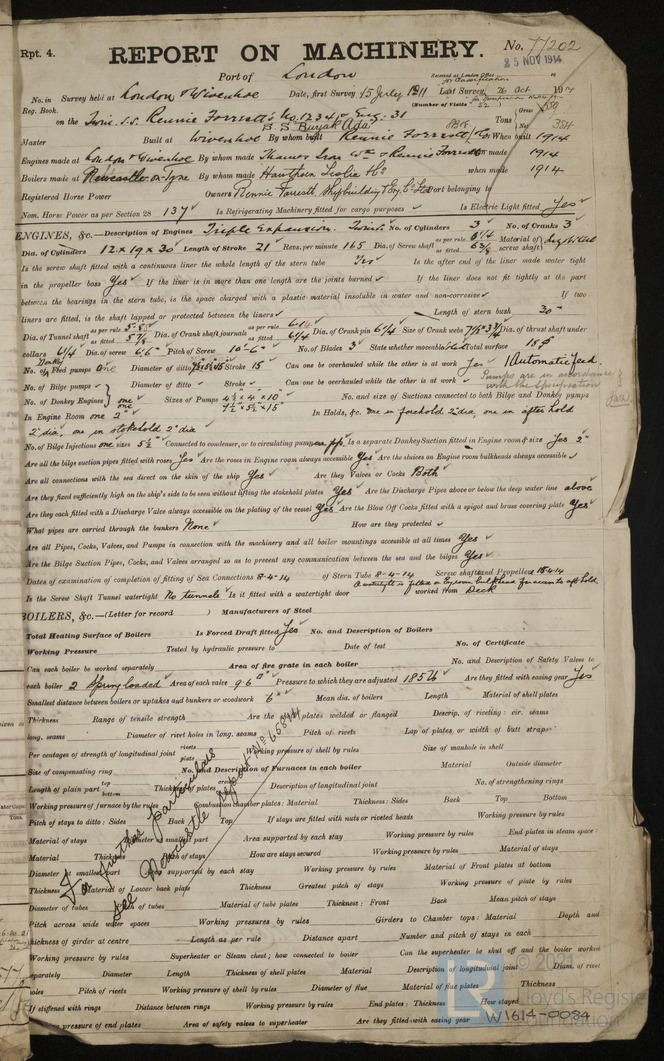 Rpt. 4.
REPORT ON MACHINERY.
No. 77202
25 NOV 1914
Port of London
Received at London Office
No. in Survey held at London & Wivenhoe Date, first Survey 15 July 1911 Last Survey, 26 Oct 1914
Reg. Book. (Number of Visits 52)
on the Twin S.S. Rennie Forrestt's No. 1234 Eng. 31 Tons Gross 550 Net 354
S.S. Burjak Ada
Master Built at Wivenhoe By whom built Rennie Forrestt When built 1914
Engines made at London & Wivenhoe By whom made Thames Iron Wks & Rennie Forrestt when made 1914
Boilers made at Newcastle-on-Tyne By whom made Hawthorn Leslie & Co when made 1914
Registered Horse Power Owners Rennie Forrestt Shipbuilding & Eng. Co Ltd Port belonging to
Nom. Horse Power as per Section 28 137 Is Refrigerating Machinery fitted for cargo purposes Is Electric Light fitted Yes
ENGINES, &c.—Description of Engines Triple Expansion. Twin. No. of Cylinders 3 No. of Cranks 3
Dia. of Cylinders 12 x 19 x 30 Length of Stroke 21 Revs. per minute 165 Dia. of Screw shaft as per rule 6 1/4 as fitted 6 3/8 Material of screw shaft
Is the screw shaft fitted with a continuous liner the whole length of the stern tube Yes Is the after end of the liner made water tight
in the propeller boss Yes If the liner is in more than one length are the joints burned If the liner does not fit tightly at the part
between the bearings in the stern tube, is the space charged with a plastic material insoluble in water and non-corrosive If two
liners are fitted, is the shaft lapped or protected between the liners Length of stern bush 30"
Dia. of Tunnel shaft as per rule as fitted 5 7/8 Dia. of Crank shaft journals as per rule 6.14 as fitted 6 1/4 Dia. of Crank pin 6 1/4 Size of Crank webs Dia. of thrust shaft under
collars 6 1/4 Dia. of screw 6'6" Pitch of Screw 10'-6" No. of Blades 3 State whether moveable Total surface 15
No. of Feed pumps One Diameter of ditto Stroke 15 Can one be overhauled while the other is at work Yes 1 Automatic feed.
No. of Bilge pumps Diameter of ditto Stroke Can one be overhauled while the other is at work Pumps are in accordance with the Specification
No. of Donkey Engines one one Sizes of Pumps 4 1/2 x 4 x 10" 7 1/2 x 5 1/2 x 15" No. and size of Suctions connected to both Bilge and Donkey pumps
In Engine Room one 2" In Holds, &c. one in forehold 2" dia, one in after hold
2" dia, one in stokehold 2" dia
No. of Bilge Injections one sizes 5 1/2" Connected to condenser, or to circulating pump Is a separate Donkey Suction fitted in Engine room & size Yes 2"
Are all the bilge suction pipes fitted with roses Yes Are the roses in Engine room always accessible Yes Are the sluices on Engine room bulkheads always accessible
Are all connections with the sea direct on the skin of the ship Yes Are they Valves or Cocks Both
Are they fixed sufficiently high on the ship's side to be seen without lifting the stokehold plates Yes Are the Discharge Pipes above or below the deep water line above
Are they each fitted with a Discharge Valve always accessible on the plating of the vessel Yes Are the Blow Off Cocks fitted with a spigot and brass covering plate Yes
What pipes are carried through the bunkers None How are they protected
Are all Pipes, Cocks, Valves, and Pumps in connection with the machinery and all boiler mountings accessible at all times Yes
Are the Bilge Suction Pipes, Cocks, and Valves arranged so as to prevent any communication between the sea and the bilges Yes
Dates of examination of completion of fitting of Sea Connections 8-4-14 of Stern Tube 8-4-14 Screw shaft and Propeller 15.4.14
Is the Screw Shaft Tunnel watertight No tunnels Is it fitted with a watertight door worked from Deck
BOILERS, &c.—(Letter for record ) Manufacturers of Steel
Total Heating Surface of Boilers Is Forced Draft fitted Yes No. and Description of Boilers
Working Pressure Tested by hydraulic pressure to Date of test No. of Certificate
Can each boiler be worked separately Area of fire grate in each boiler No. and Description of Safety Valves to
each boiler 2 Spring loaded Area of each valve 9.6" Pressure to which they are adjusted 185 lb Are they fitted with easing gear Yes
Smallest distance between boilers or uptakes and bunkers or woodwork 6" Mean dia. of boilers Length Material of shell plates
Thickness Range of tensile strength Are the shell plates welded or flanged Descrip. of riveting: cir. seams
long. seams Diameter of rivet holes in long. seams Pitch of rivets Lap of plates or width of butt straps
Per centages of strength of longitudinal joint rivets plate Working pressure of shell by rules Size of manhole in shell
Size of compensating ring No. and Description of Furnaces in each boiler Material Outside diameter
Length of plain part top bottom Thickness of plates Description of longitudinal joint No. of strengthening rings
Working pressure of furnace by the rules Combustion chamber plates: Material Thickness: Sides Back Top Bottom
Pitch of stays to ditto: Sides Back Top If stays are fitted with nuts or riveted heads Working pressure by rules
Material of stays Diameter at smallest part Area supported by each stay Working pressure by rules End plates in steam space:
Material Thickness Pitch of stays How are stays secured Working pressure by rules Material of stays
Diameter at smallest part Area supported by each stay Working pressure by rules Material of Front plates at bottom
Thickness Material of Lower back plate Thickness Greatest pitch of stays Working pressure of plate by rules
Diameter of tubes Pitch of tubes Material of tube plates Thickness: Front Back Mean pitch of stays
Pitch across wide water spaces Working pressures by rules Girders to Chamber tops: Material Depth and
thickness of girder at centre Length as per rule Distance apart Number and pitch of stays in each
Working pressure by rules Superheater or Steam chest; how connected to boiler Can the superheater be shut off and the boiler worked
separately Diameter Length Thickness of shell plates Material Description of longitudinal joint Diam. of rivet
holes Pitch of rivets Working pressure of shell by rules Diameter of flue Material of flue plates Thickness
If stiffened with rings Distance between rings Working pressure by rules End plates: Thickness How stayed
Working pressure of end plates Area of safety valves to superheater Are they fitted with easing gear
For further particulars
see Newcastle report No 65894
© 2021
Lloyd's Register
Foundation
W1614-0084